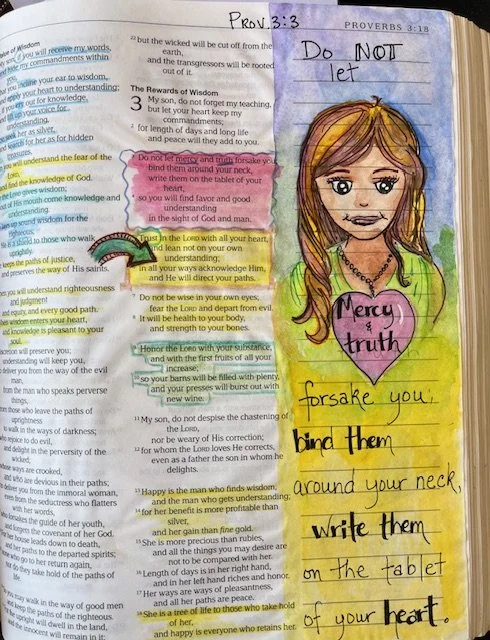 PROV. 3:3
PROVERBS 3:18
Value of Wisdom
My son, if you will receive my words,
and hide my commandments within
you,
that you incline your ear to wisdom,
apply your heart to understanding;
if you cry out for knowledge,
lift up your voice for
understanding,
seek her as silver,
and search for her as for hidden
treasures,
you will understand the fear of the
LORD,
and find the knowledge of God.
the LORD gives wisdom;
out of His mouth come knowledge and
understanding
stores up sound wisdom for the
upright;
He is a shield to those who walk
uprightly
keeps the paths of justice,
and preserves the way of His saints.
you will understand righteousness
and judgment
and equity, and every good path.
When wisdom enters your heart,
and knowledge is pleasant to your
soul,
discretion will preserve you;
understanding will keep you,
to deliver you from the way of the evil
man,
from the man who speaks perverse
things,
from those who leave the paths of
uprightness
to walk in the ways of darkness;
who rejoice to do evil,
and delight in the perversity of the
wicked;
whose ways are crooked,
and who are devious in their paths;
to deliver you from the immoral woman,
from the seductress who flatters
with her words,
who forsakes the guide of her youth,
and forgets the covenant of her God.
For her house leads down to death,
and her paths to the departed spirits;
none who go to her return again,
nor do they take hold of the paths of
life.
you may walk in the way of good men
and keep the paths of righteous.
the upright will dwell in the land,
and the innocent will remain in it;
22 but the wicked will be cut off from the
earth,
and the transgressors will be rooted
out of it.
The Rewards of Wisdom
3 My son, do not forget my teaching,
but let your heart keep my
commandments;
2 for length of days and long life
and peace will they add to you.
3 Do not let mercy and truth forsake you;
bind them around your neck,
write them on the tablet of your
heart,
4 so you will find favor and good
understanding
in the sight of God and man.
5 Trust in the LORD with all your heart,
and lean not on your own
understanding;
6 in all your ways acknowledge Him,
and He will direct your paths.
7 Do not be wise in your own eyes,
fear the LORD and depart from evil.
8 It will be health to your body,
and strength to your bones.
9 Honor the LORD with your substance,
and with the first fruits of all your
increase;
10 so your barns will be filled with plenty,
and your presses will burst out with
new wine.
11 My son, do not despise the chastening of
the LORD,
nor be weary of His correction;
12 for whom the LORD loves He corrects,
even as a father the son in whom he
delights.
13 Happy is the man who finds wisdom,
and the man who gets understanding;
14 for her benefit is more profitable than
silver,
and her gain than fine gold.
15 She is more precious than rubies,
and all the things you may desire are
not to be compared with her.
16 Length of days is in her right hand,
and in her left hand riches and honor.
17 Her ways are ways of pleasantness,
and all her paths are peace.
18 She is a tree of life to those who take hold
of her,
and happy is everyone who retains her.
Do NOT
let
Mercy
&
truth
forsake you,
bind them
around your neck,
write them
on the tablet
of your heart.